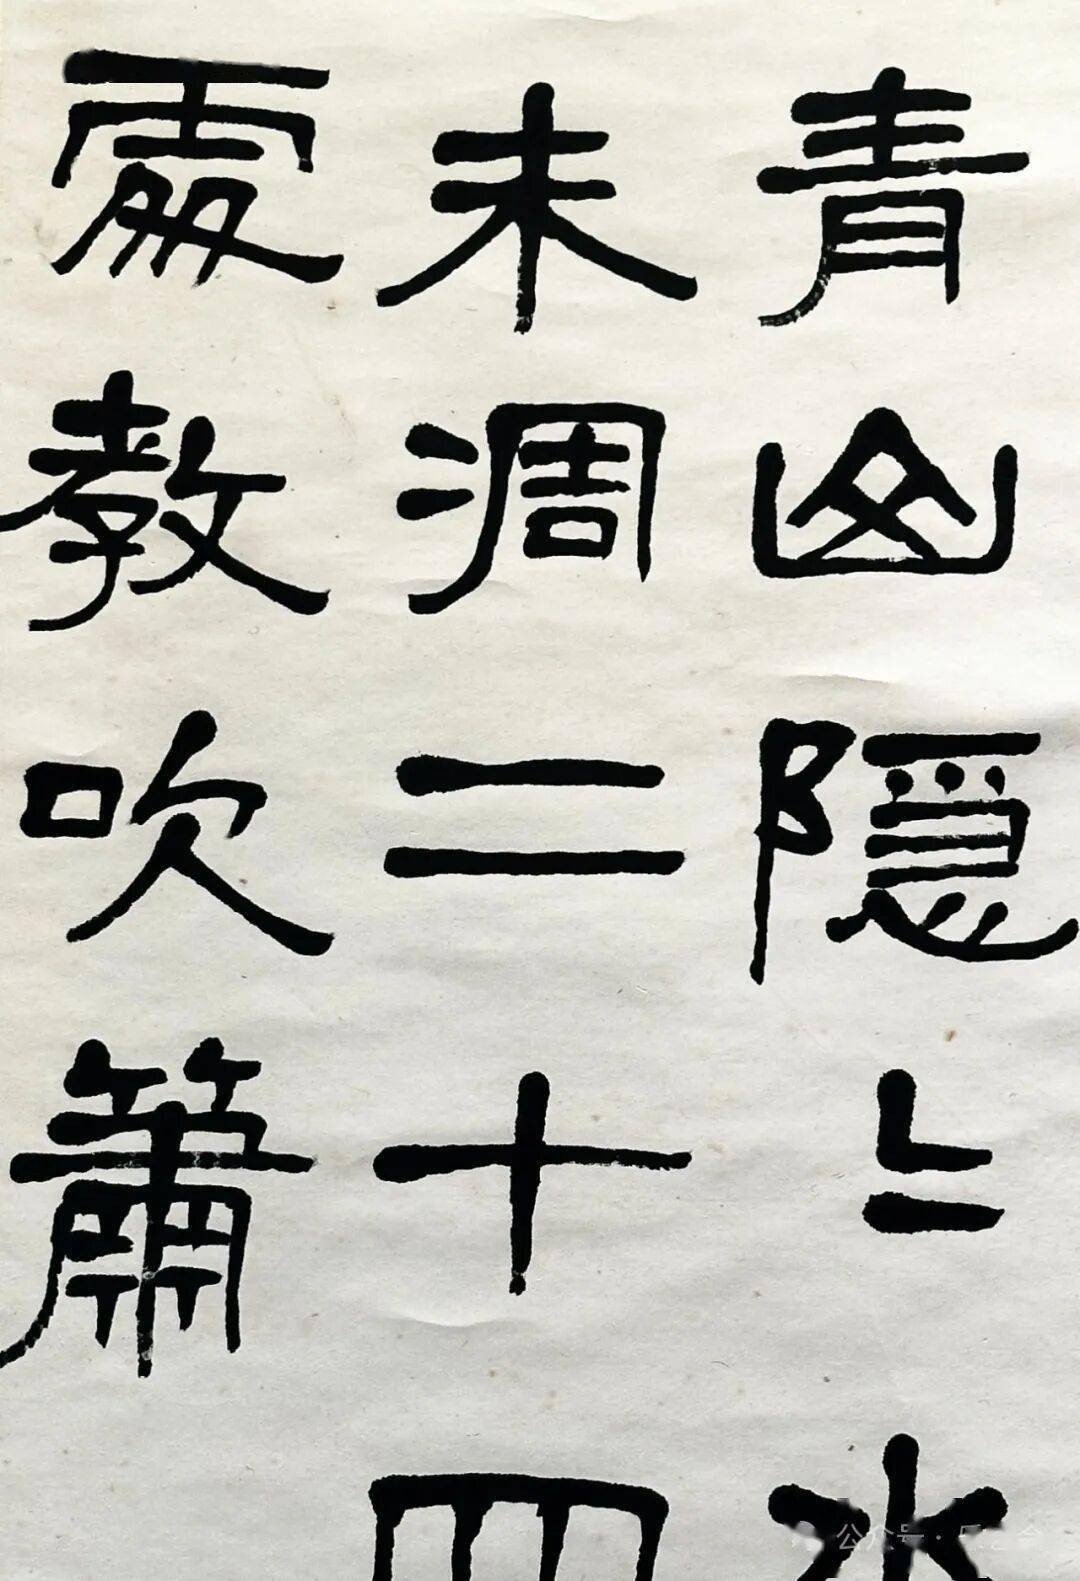 青山隱〻水
未凋二十四
處教吹簫
公众号